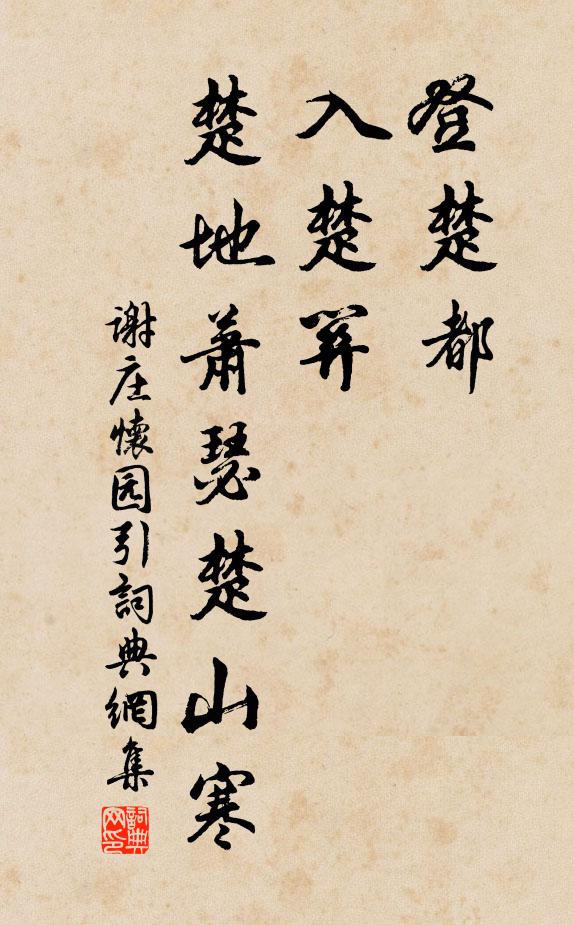 登楚都
入楚關
楚地蕭瑟楚山寒
谢庄懷园引詞典網集
詞典
网印